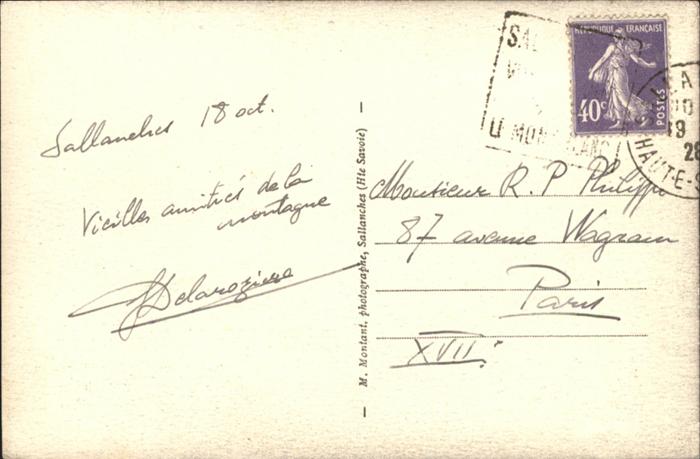 Sallanches 18 oct.
Vieilles amitiés de la
montagne
Delaroziere
M. Montant, photographe, Sallanches (Hte Savoie)
LE MONT BLANC
REPUBLIQUE FRANÇAISE
40c
POSTES
19
28
HAUTE-S
Monsieur R. P. Philippe
87 avenue Wagram
Paris
XVII